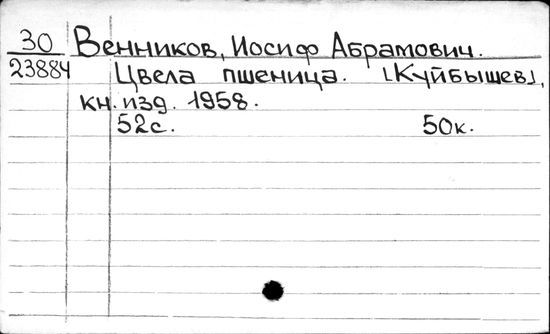 30 Венников, Иосиф Абрамович.
23884 Цвела пшеница. [Куйбышев],
кн. изд. 1958.
52с. 50к.